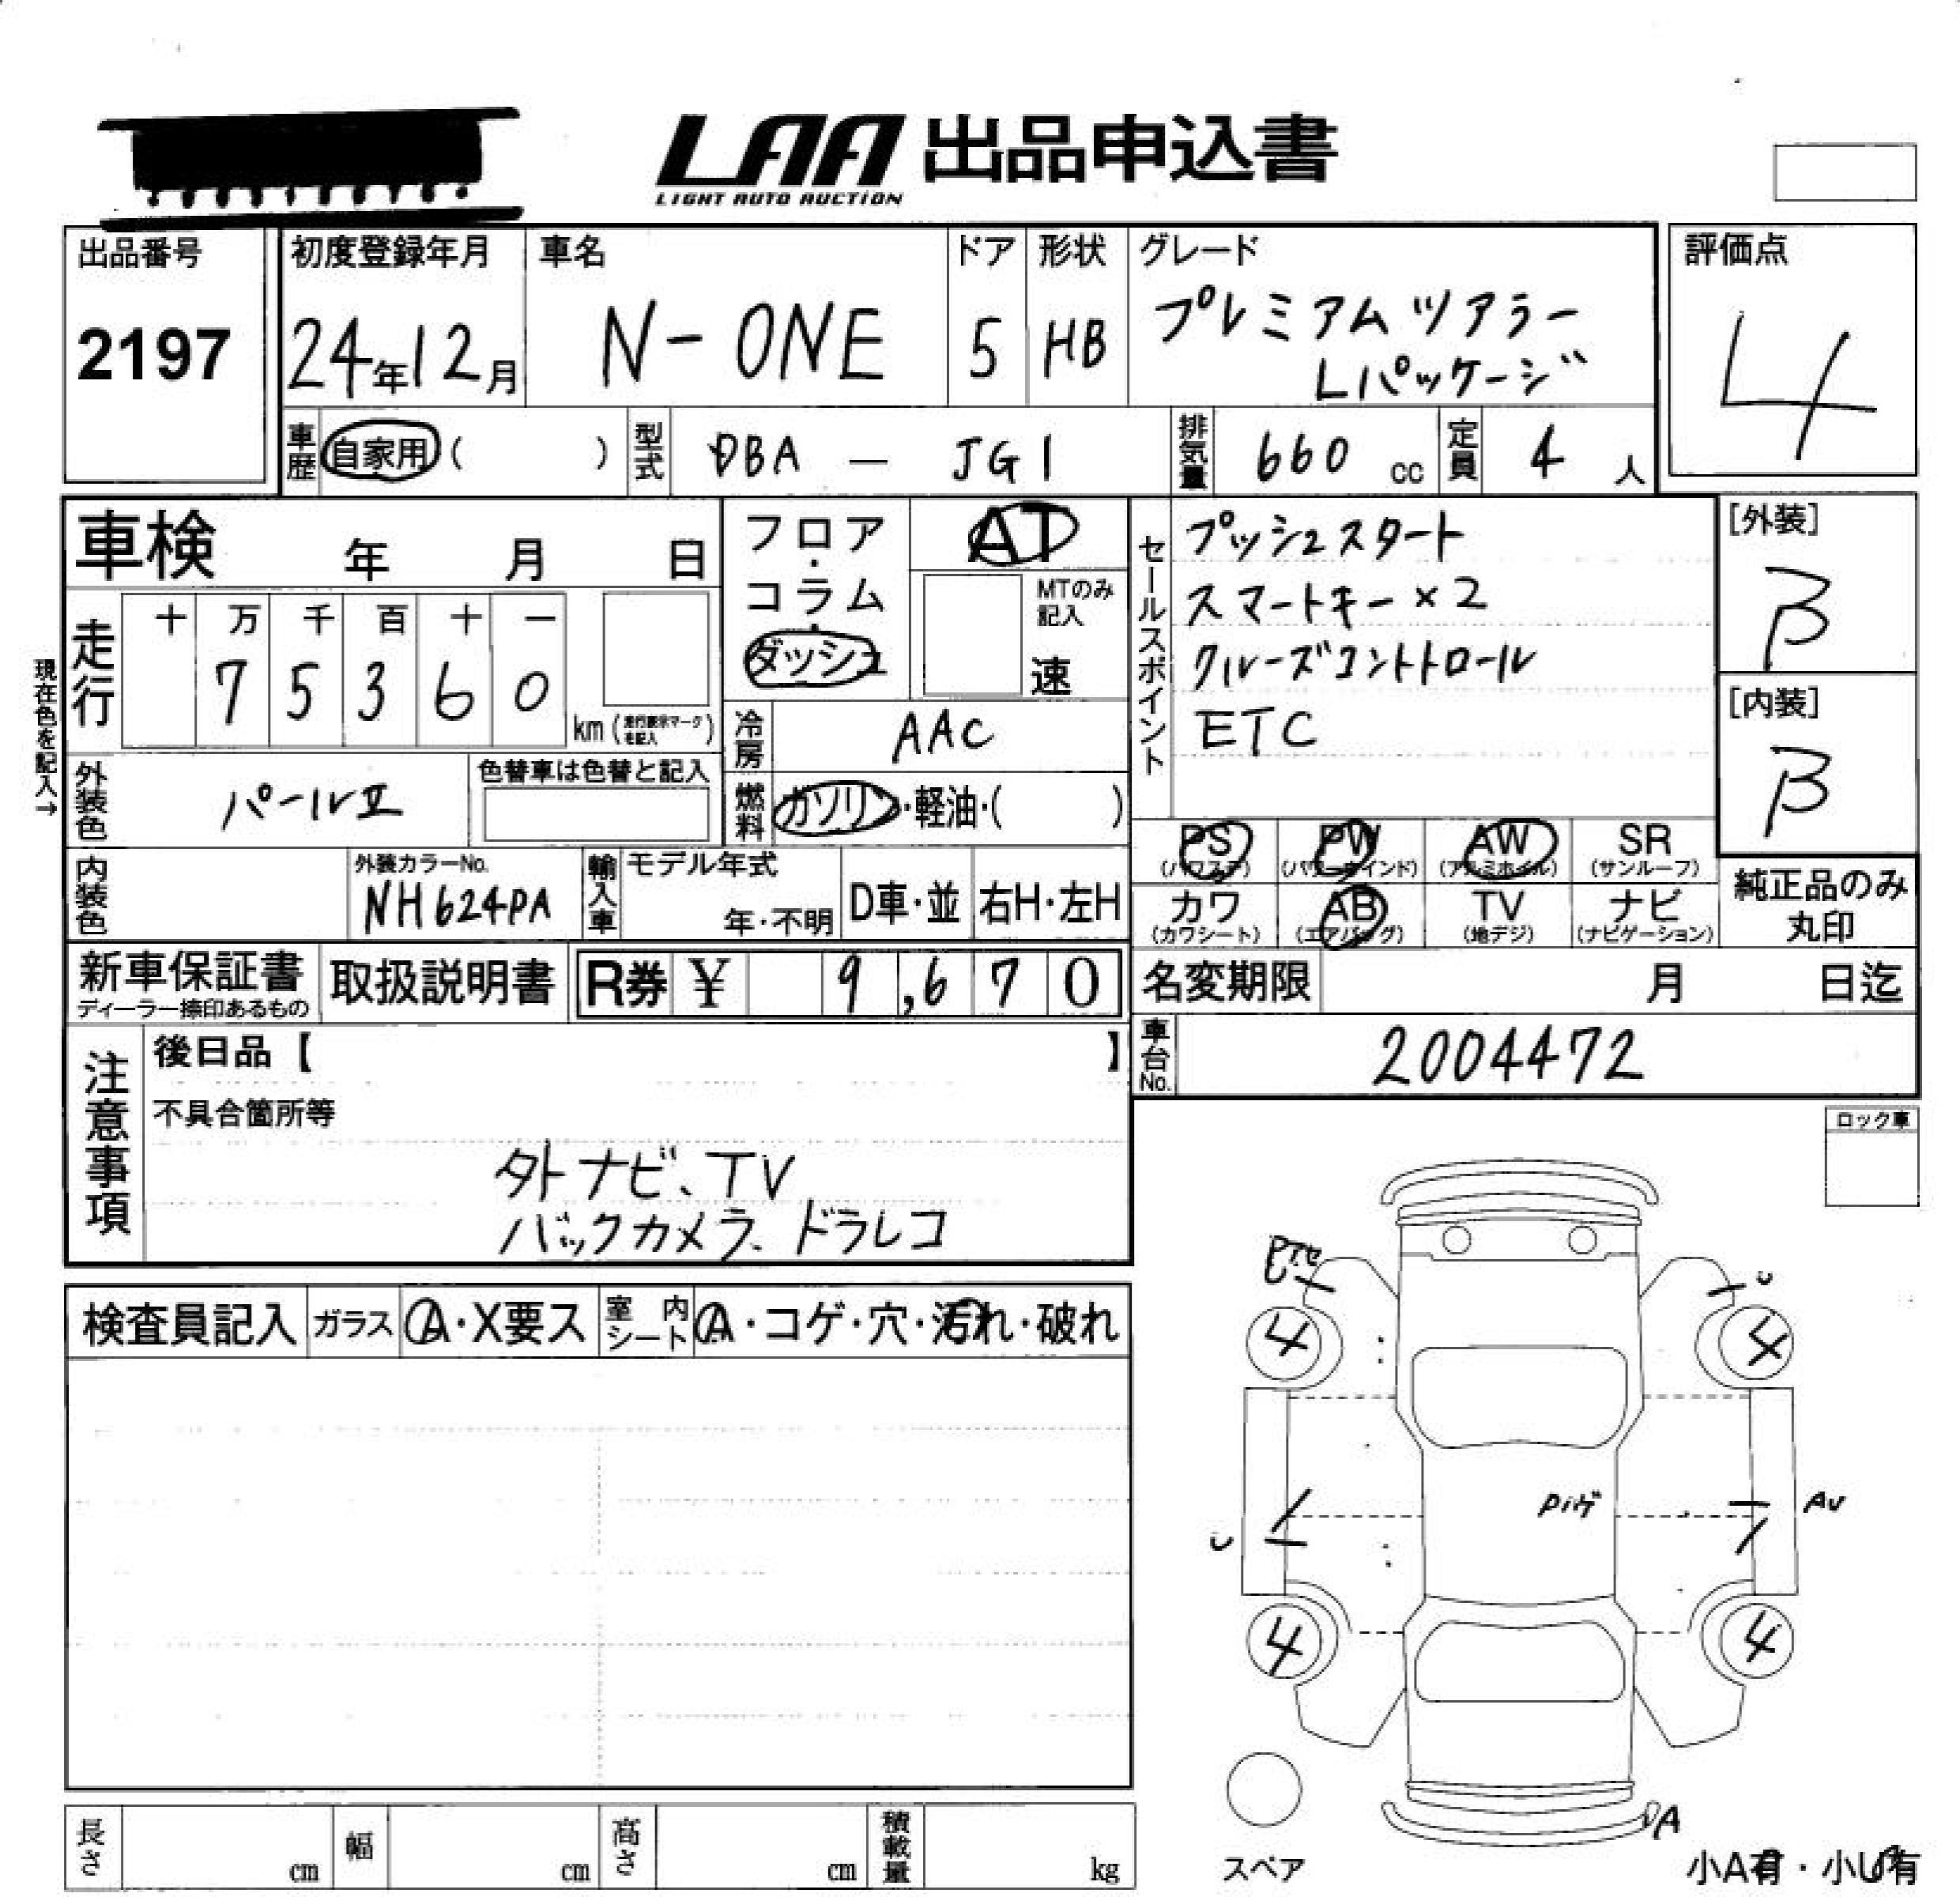 LAA 出品申込書
LIGHT AUTO AUCTION
出品番号
2197
初度登録年月
24年12月
車名
N-ONE
ドア
5
形状
HB
グレード
プレミアムツアラー
Lパッケージ
評価点
4
車歴 自家用( )
型式 DBA - JG1
排気量 660 cc
定員 4 人
車検 年 月 日
走行
十 万 千 百 十 一
7 5 3 6 0
km(走行表示マークを記入)
現在色を記入→
外装色 パールII
色替車は色替と記入
内装色
外装カラーNo.
NH624PA
フロア・コラム・ダッシュ
AT
MTのみ記入
速
冷房 AAC
燃料 ガソリン・軽油・( )
輸入車 モデル年式
年・不明
D車・並
右H・左H
セールスポイント
プッシュスタート
スマートキー×2
クルーズコントトロール
ETC
[外装]
B
[内装]
B
PS
(パワステ)
PW
(パワーウインド)
AW
(アルミホイル)
SR
(サンルーフ)
カワ
(カワシート)
AB
(エアバッグ)
TV
(地デジ)
ナビ
(ナビゲーション)
純正品のみ
丸印
新車保証書
ディーラー捺印あるもの
取扱説明書
R券 ¥ 9,670
名変期限 月 日迄
車台No. 2004472
注意事項
後日品【 】
不具合箇所等
外ナビ、TV
バックカメラ、ドラレコ
ロック車
検査員記入
ガラス A・X要ス
室内シート A・コゲ・穴・汚れ・破れ
U
4
4
Pハゲ
U
AU
4
4
A
スペア
小A有・小U有
長さ cm
幅 cm
高さ cm
積載量 kg